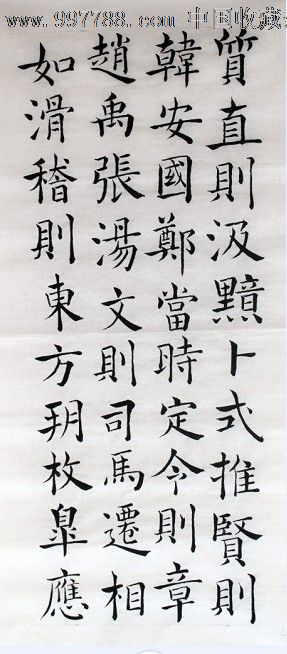 www.997788.com 中国收藏
質直則汲黯卜式推賢則
韓安國鄭當時定令則章
趙禹張湯文則司馬遷相
如滑稽則東方朔枚皐應